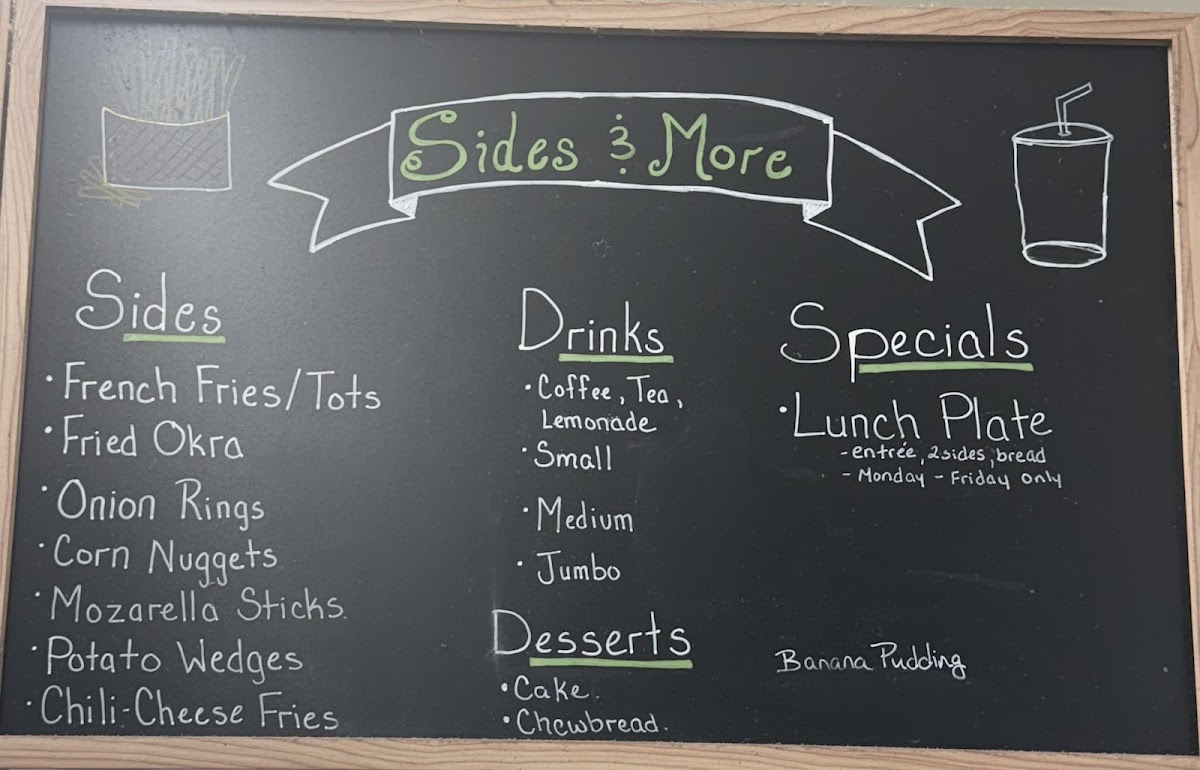 Sides & More
Sides
• French Fries/Tots
• Fried Okra
• Onion Rings
• Corn Nuggets
• Mozarella Sticks.
• Potato Wedges
• Chili-Cheese Fries
Drinks
• Coffee, Tea,
Lemonade
• Small
• Medium
• Jumbo
Desserts
• Cake.
• Chewbread.
Specials
• Lunch Plate
- entrée, 2 sides, bread
- Monday - Friday only
Banana Pudding